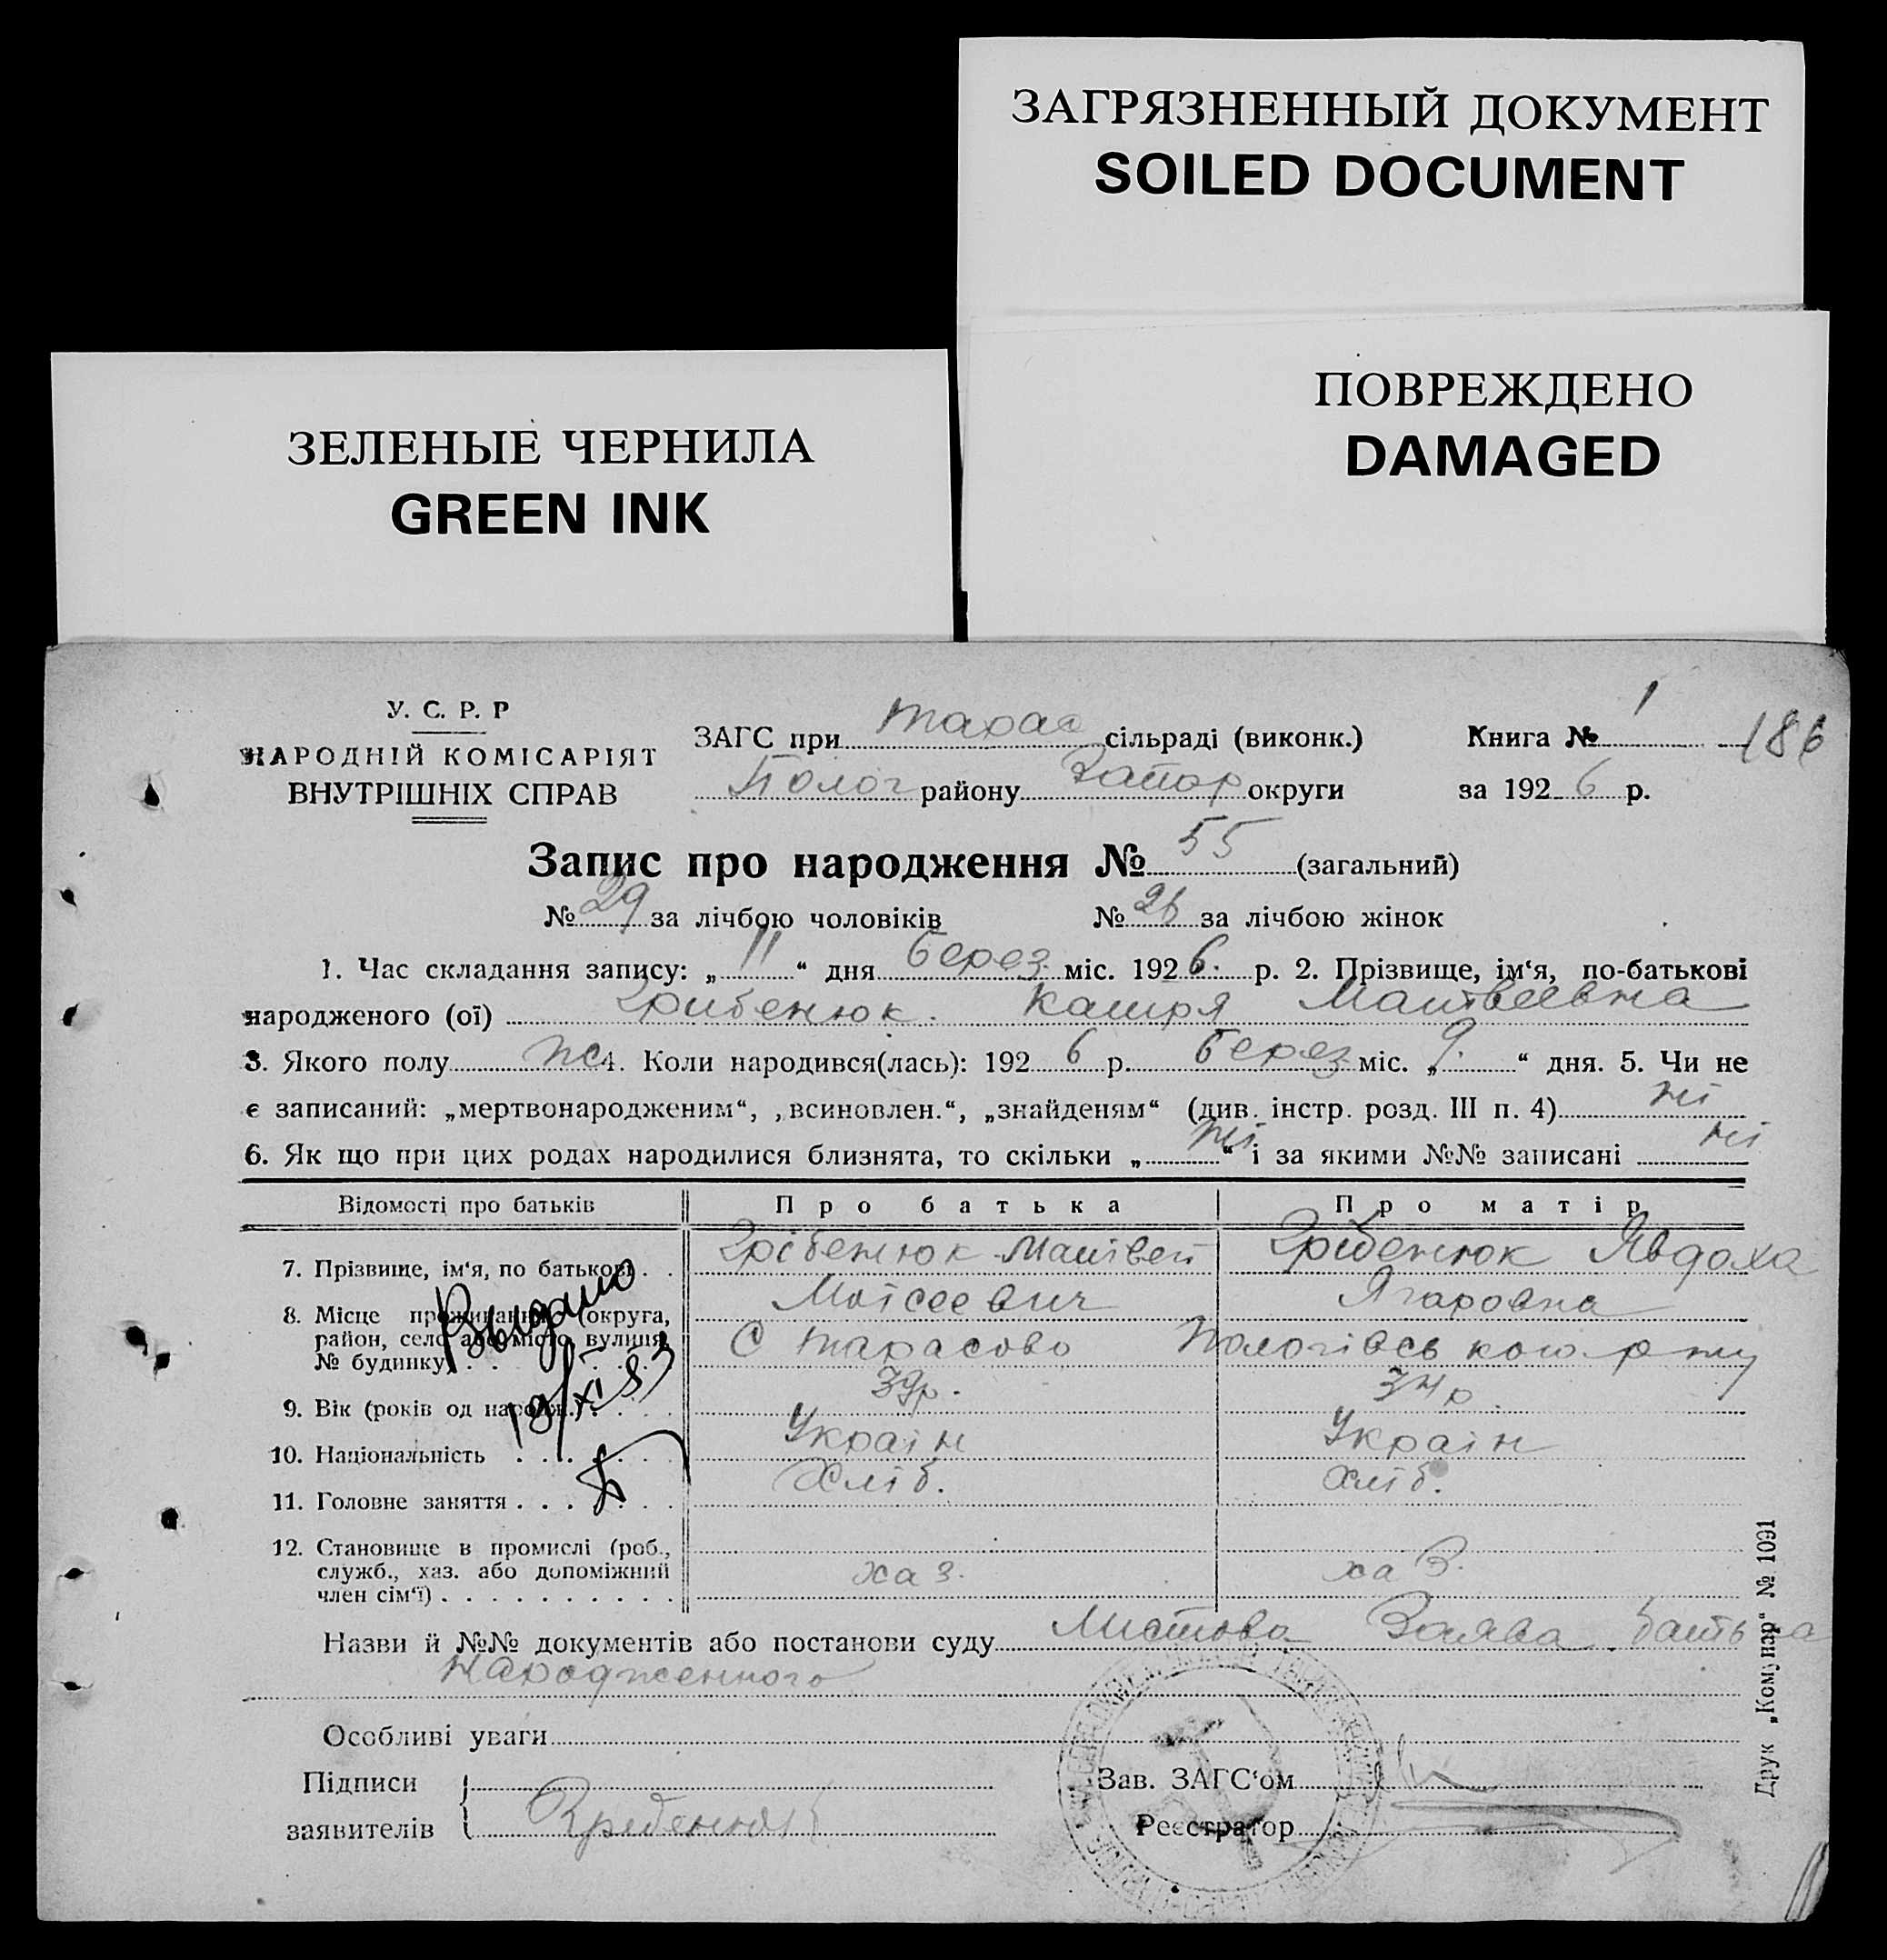 ЗАГРЯЗНЕННЫЙ ДОКУМЕНТ
SOILED DOCUMENT
ПОВРЕЖДЕНО
DAMAGED
ЗЕЛЕНЫЕ ЧЕРНИЛА
GREEN INK
У. С. Р. Р
НАРОДНІЙ КОМІСАРІЯТ
ВНУТРІШНІХ СПРАВ
ЗАГС при Тарас сільраді (виконк.) Книга № 1 186
Полог району Запор округи за 1926 р.
Запис про народження № 55 (загальний)
№ 29 за лічбою чоловіків № 26 за лічбою жінок
1. Час складання запису: „11“ дня берез. міс. 1926. р. 2. Прізвище, ім‘я, по-батькові
народженого (ої) Грибенюк. Матвеевна
3. Якого полу 4. Коли народився(лась): 1926 р. берез. міс. „9.“ дня. 5. Чи не
є записаний: „мертвонародженим“, „всиновлен.“, „знайденям“ (див. інстр. розд. III п. 4) ні
6. Як що при цих родах народилися близнята, то скільки „ні“ і за якими №№ записані ні
Відомості про батьків Про батька Про матір
7. Прізвище, ім‘я, по батькові . . Грібенюк Матвей Грібенюк Явдоха
Моісеевич Ягаровна
8. Місце проживання (округа,
район, село або місто, вулиця,
№ будинку) . . С Тарасово Пологівсь кого р ну
Выдано
18/XI 83
9. Вік (років од народж.) . . . . 39р. 34 р
10. Національність . . . . . . . Україн Україн
11. Головне заняття . . . . . . . Хліб. Хліб.
12. Становище в промислі (роб.,
служб., хаз. або допоміжний
член сім‘ї) . . . . . . . . . . хаз. хаз.
Назви й №№ документів або постанови суду Заява батька
народженного
Особливі уваги
Підписи
заявителів Грибенюк
Зав. ЗАГС‘ом
Реєстратор
Друк „Комунар“ № 1091